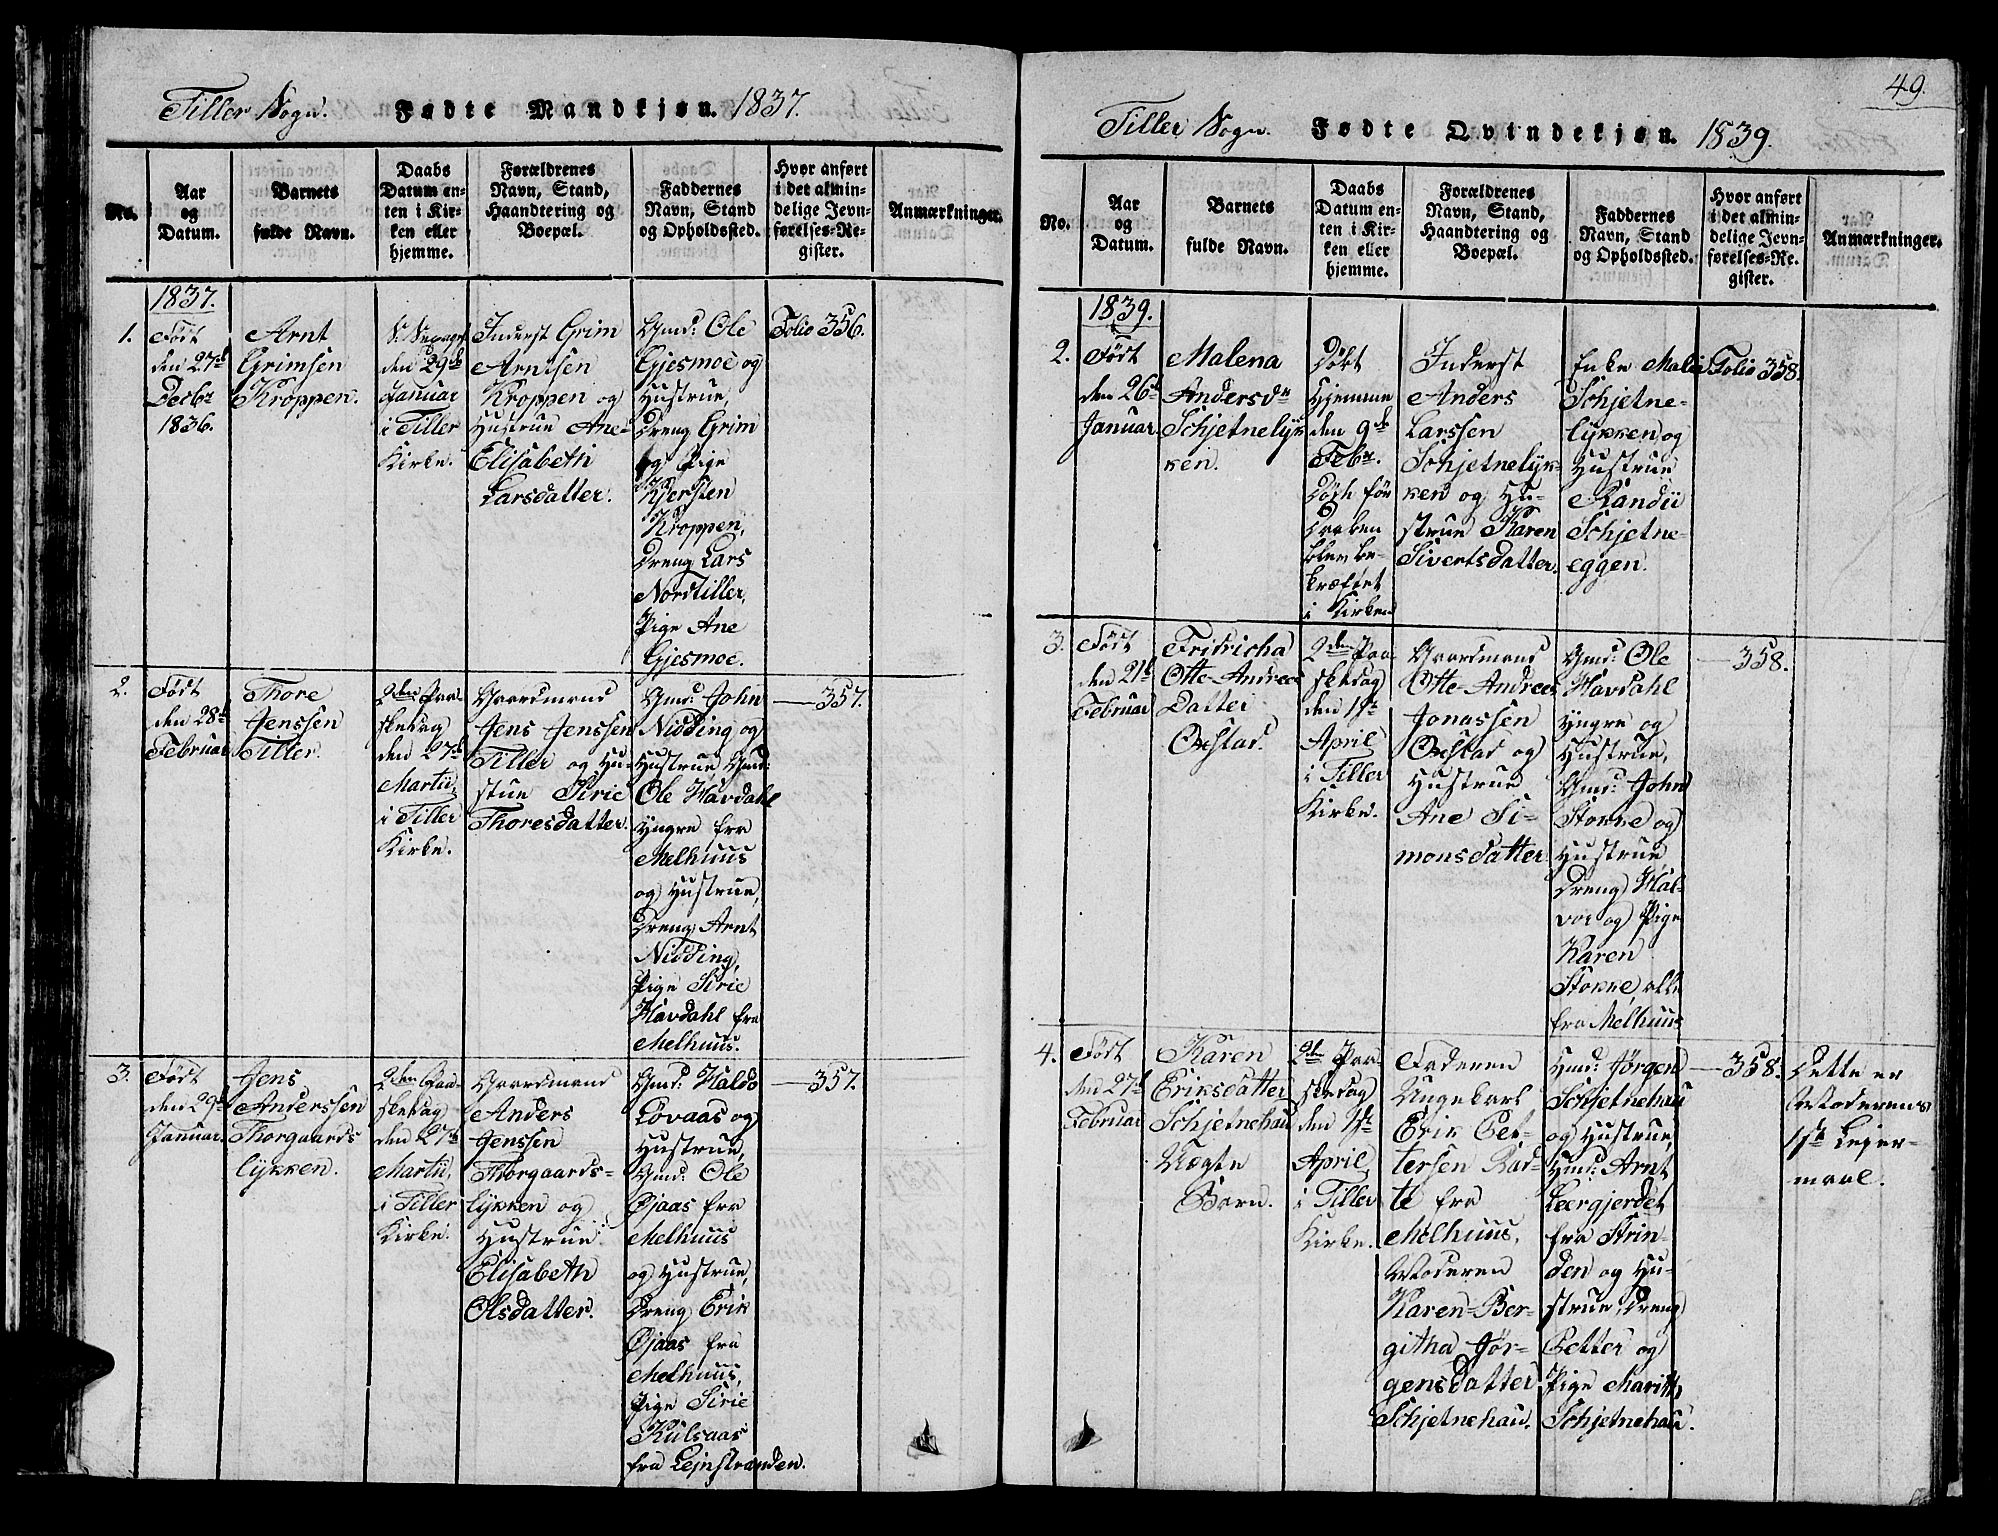 Tiller Sogn. Fødte Mandkjøn. 1837.
No.
Aar
og
Datum.
Barnets
fulde Navn.
Daabs
Datum en-
ten i Kir-
ken eller
hjemme.
Forældrenes
Navn, Stand,
Haandtering og
Boepæl.
Faddernes
Navn, Stand
og Opholdssted.
Hvor anført
i det almin-
delige Jevn-
førelses-Re-
gister.
Anmærkninger.
1837.
1.
Født
den 27de
Decbr
1836.
Arnt
Grimsen
Kroppen.
den 29de
Januar
i Tiller
Kirke.
Inderst Grim
Arntsen
Kroppen og
Hustrue Ane-
Elisabeth
Larsdatter.
Gmd: Ole
Gjesmoe og
Hustrue,
Dreng Grim
og Pige
Kjersten
Kroppen,
Dreng Lars
Nordtiller,
Pige Ane
Gjesmoe.
Folio 356.
2.
Født
den 28de
Februar
Thore
Jenssen
Tiller.
2den Paa-
skedag
den 27de
Martii,
i Tiller
Kirke.
Gaardmand
Jens Jenssen
Tiller og Hu-
strue Sirie
Thoresdatter.
Gmd: John
Nidding og
Hustrue, Gmd:
Ole Havdahl
yngre fra
Melhuus
og Hustrue,
Dreng Arnt
Nidding,
Pige Sirie
Havdahl fra
Melhuus.
— 357.
3.
Født
den 29de
Januar.
Jens
Anderssen
Thorgaards
lykken.
2den Paa-
skedag
den 27de
Martii,
i Tiller
Kirke.
Gaardmand
Anders
Jenssen
Thorgaards-
lykken og
Hustrue
Elisabeth
Olsdatter.
Gmd: Haldo
Lovaas og
Hustrue,
Gmd: Ole
Øjaas fra
Melhuus
og Hustrue,
Dreng Erik
Øjaas fra
Melhuus,
Pige Sirie
Kulsaas
fra Lejnstranden.
— 357.
49.
Tiller Sogn. Fødte Qvindekjøn. 1839.
No.
Aar
og
Datum.
Barnets
fulde Navn.
Daabs
Datum en-
ten i Kir-
ken eller
hjemme.
Forældrenes
Navn, Stand,
Haandtering og
Boepæl.
Faddernes
Navn, Stand
og Opholdssted.
Hvor anført
i det almin-
delige Jevn-
førelses-Re-
gister.
Anmærkninger.
1839.
2.
Født
den 26de
Januar
Malena
Andersdr
Schjetnelyk
ken.
Døbt
Hjemme
den 9de
Febr.
Døde før
Daaben
blev be-
kræftet
i Kirken
Inderst
Anders
Larssen
Schjetnelyk-
ken og Hu-
strue Karen
Sivertsdatter.
Enke Malin
Schjetne-
lykken og
Hustrue
Randii
Schjetne-
eggen.
Folio 358.
3.
Født
den 21de
Februar
Fridricha
Otte-Andreas
Datter
Oxstad.
2den Paa-
skedag
den 1ste
April
i Tiller
Kirke.
Gaardmand
Otte-Andreas
Jonassen
Oxstad og
Hustrue
Ane Si-
monsdatter
Gmd: Ole
Havdahl
yngre og
Hustrue,
Gmd: John
Stokke og
Hustrue,
Dreng Hal-
vor og Pige
Karen
Stokke, alle
fra Melhuus
— 358.
4.
Født
den 27de
Februar
Karen
Eriksdatter
Schjetnehau
Uægte
Barn.
2den Paa-
skedag
den 1ste
April,
i Tiller
Kirke.
Faderen
Ungekarl
Erik Pet-
tersen Rad-
te fra
Melhuus,
Moderen
Karen-Ber-
githa Jør-
gensdatter
Schjetnehau.
Hmd: Jørgen
Schjetnehau
og Hustrue,
Hmd: Arnt
Leergjerdet
fra Strin-
den og Hu-
strue, Dreng
Petter og
Pige Maritt
Schjetnehau.
— 358.
Dette er
Moderens
1ste Lejer-
maal.